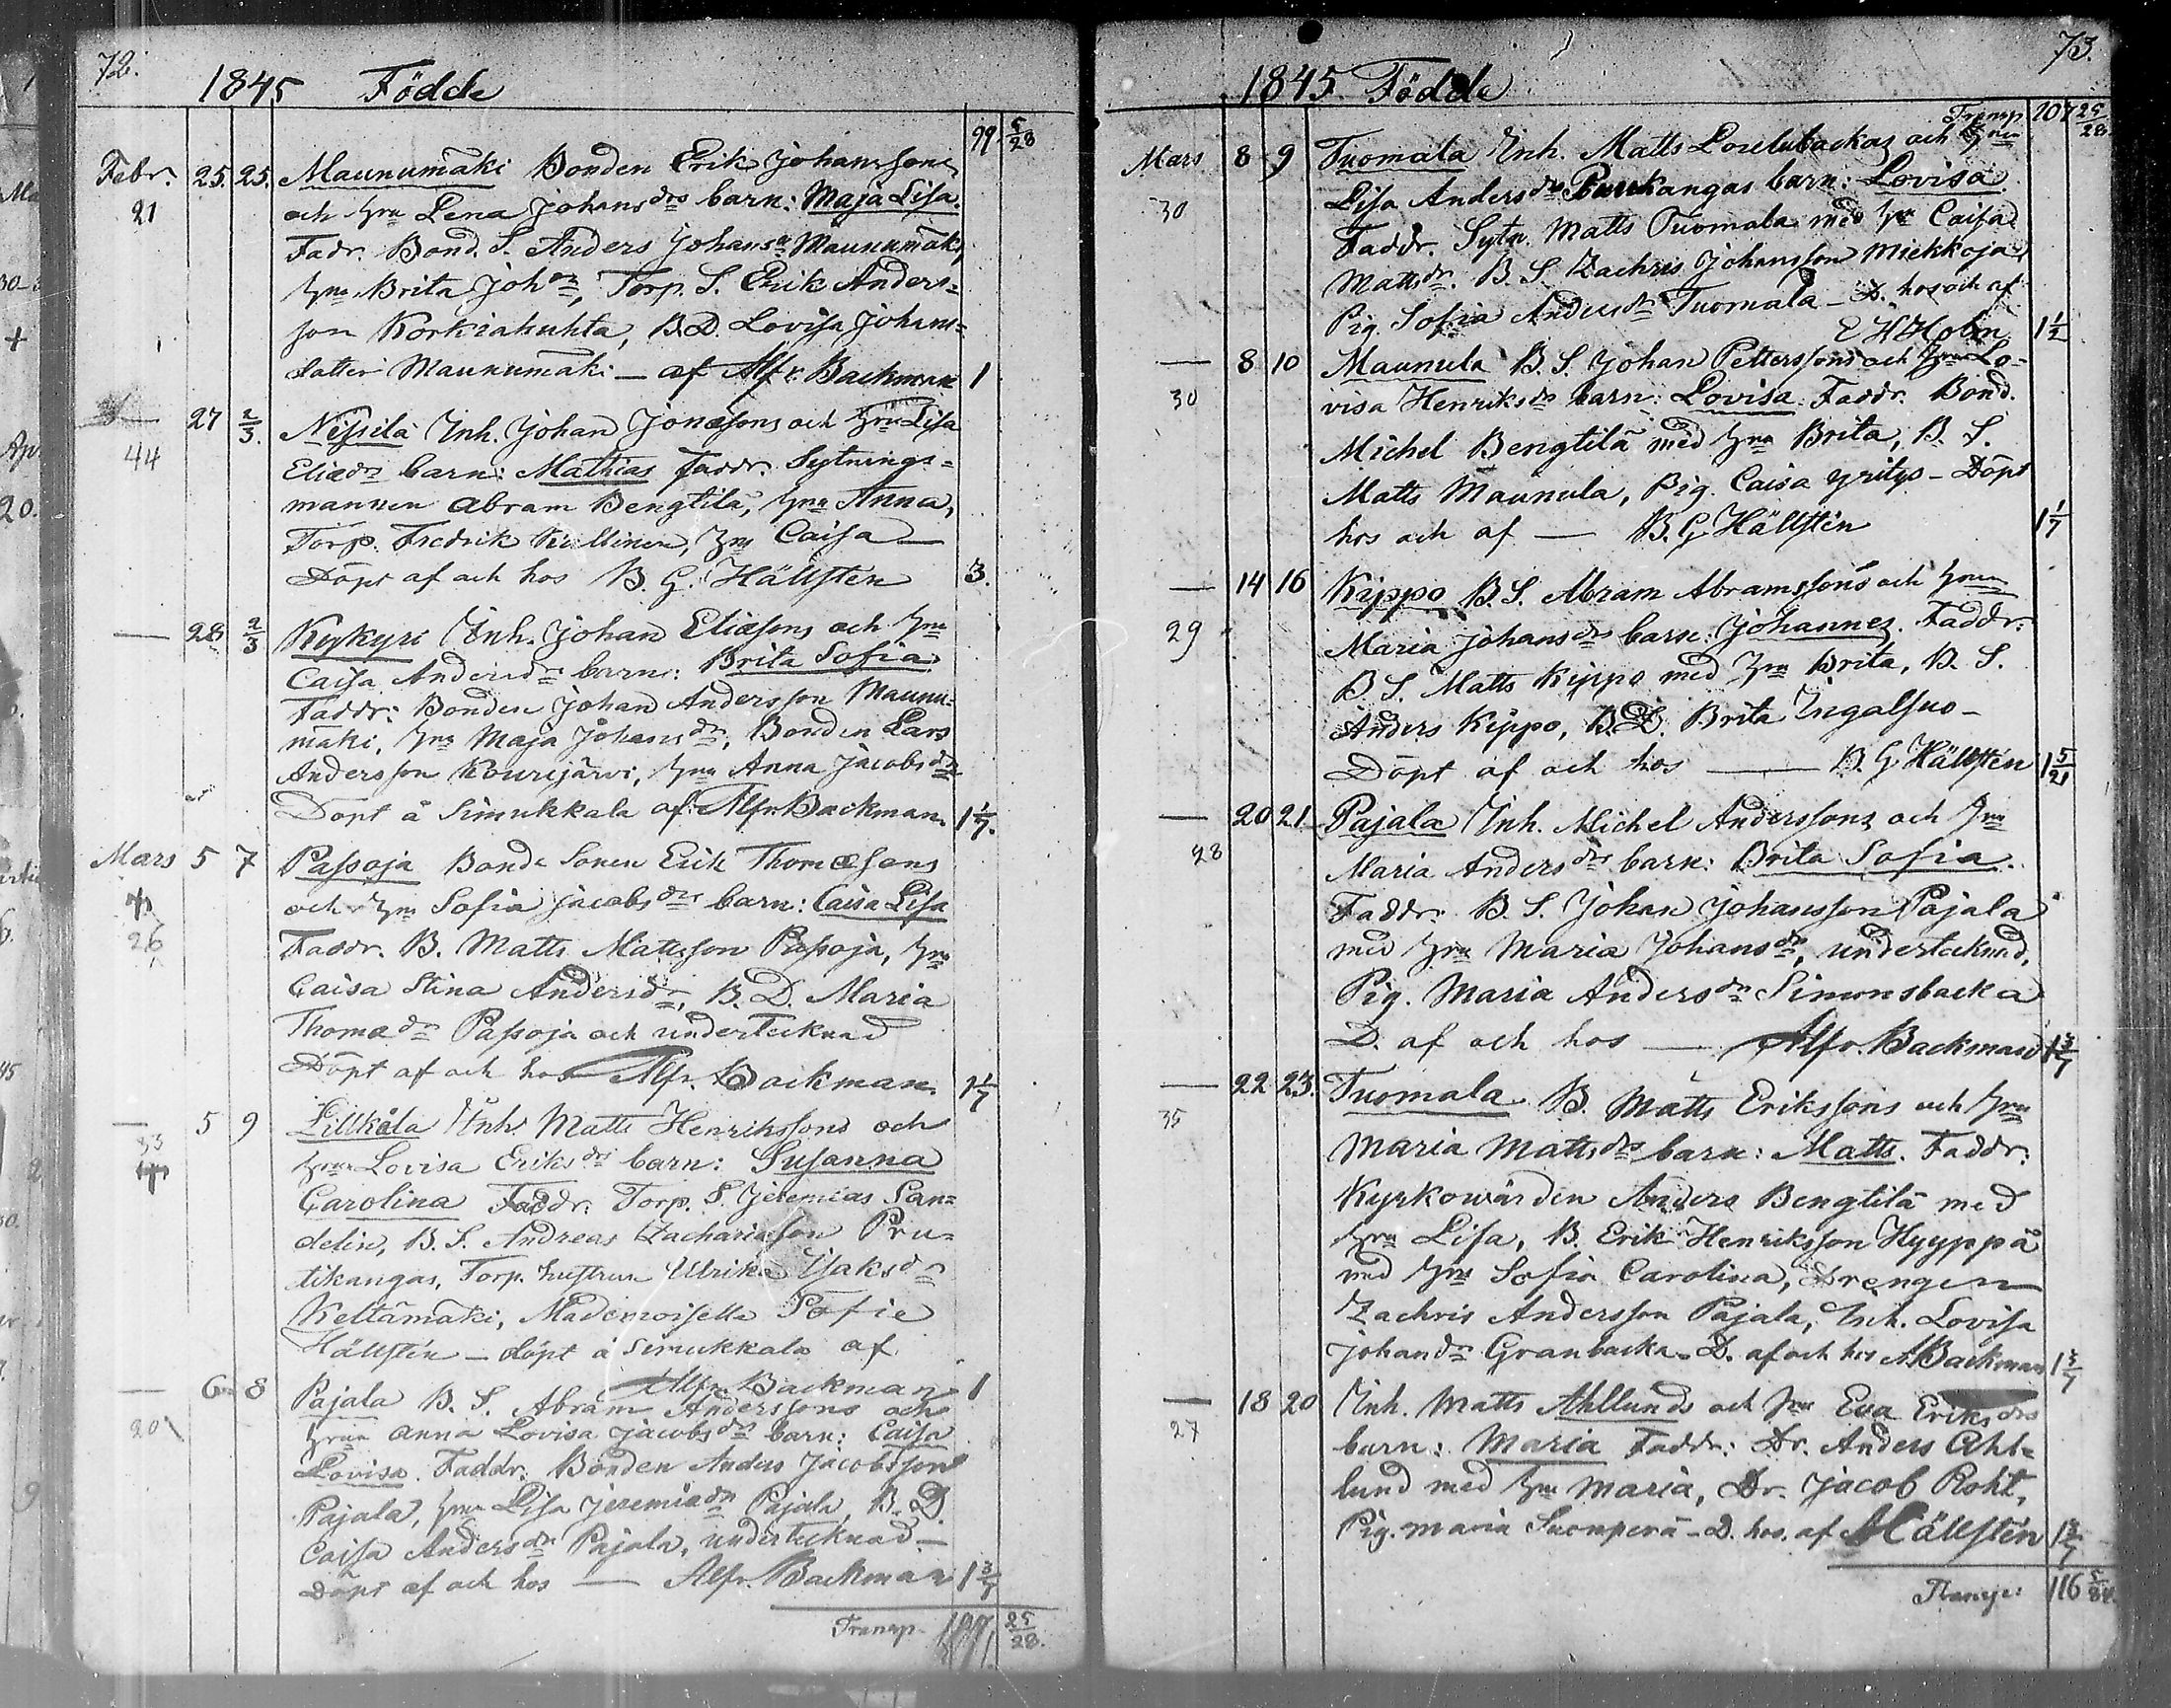 72.
1845 Födde
99. 5/28
Febr. 25. 25. Maunumäki Bonden Erik Johanssons
21 och hru Lena Johansdrs barn: Maja Lisa.
Fadr. Bond. S. Anders Johansn Maunumäki,
hru Brita Johdr, Torp. S. Erik Anders=
son Korkiakuhta, B.D. Lovisa Johans=
datter Maunumäki — af Alfr. Backman 1
— 27 2/3. Nissilä Inh. Johan Jonæsons och hru Lisa
44 Eliædrs barn: Mathias Faddr. Sytnings=
mannen Abram Bengtilä, hru Anna,
Torp. Fredrik Kultinen, hru Caisa —
Döpt af och hos B. G. Hällsten 3.
— 28 2/3 Kykyri Inh. Johan Eliæsons och hru
Caisa Andersdrs barn: Brita Sofia
Faddr: Bonden Johan Andersson Maunu=
mäki, hru Maja Johansdr, Bonden Lars
Andersson Kourijärvi, hru Anna Jacobsdr
Döpt å Simukkala af: Alfr. Backman. 1 1/7.
Mars 5 7 Passoja Bonde Sonen Erik Thomæsons
26 och hru Sofia Jacobsdrs barn: Caisa Lisa
Faddr. B. Matts Mattsson Passoja, hru
Caisa Stina Andersdr, B. D. Maria
Thomædr Passoja och undertecknad
Döpt af och hos Alfr. Backman. 1 1/7
— 5 9 Lillkåla Inh. Matts Henrikssons och
33 hru Lovisa Eriksdrs barn: Susanna
Carolina Faddr. Torp. S. Jeremias San=
delin, B. S. Andreas Zachariæson Pru=
tikangas, Torp. hustrun Ulrika Isaksdr
Keltämäki, Mademoiselle Sofie
Hällstén — döpt å Simukkala af
Alfr. Backman 1
— 6 8 Pajala B. S. Abram Anderssons och
20 hrun Anna Lovisa Jacobsdrs barn: Caisa
Lovisa. Faddr. Bonden Anders Jacobsson
Pajala, hrun Lisa Jeremiædr Pajala, B. D.
Caisa Andersdr Pajala, undertecknad —
Döpt af och hos — Alfr. Backman 1 3/7
Transp. 107 25/28.
73.
1845 Födde
Transp 107 25/28
Mars 8 9 Tuomala Inh. Matts och hrun
30 Lisa Andersdrs barn: Lovisa.
Faddr. Sytn. Matts Tuomala med hru Caisa
Mattsdr. B. S. Zachris Johansson Miekkoja
Pig. Sofia Andersdr Tuomala — D. hos och af
E H Holm 1 1/2
— 8 10 Maunula B. S. Johan Petterssons och hrun Lo=
30 visa Henriksdrs barn: Lovisa. Faddr. Bond.
Michel Bengtilä med hru Brita, B. S.
Matts Maunula, Pig. Caisa Yritys — Döpt
hos och af — B. G. Hällstén 1 1/7
— 14 16 Kippo B. S. Abram Abramssons och hrun
29 Maria Johansdrs barn: Johannes. Faddr.
B. S. Matts Kippo med hru Brita, B. S.
Anders Kippo, B. D. Brita Ingalsuo —
Döpt af och hos — B. G. Hällstén 1 5/21
— 20 21 Pajala Inh. Michel Anderssons och hru
28 Maria Andersdrs barn: Brita Sofia.
Faddr. B. S. Johan Johansson Pajala
med hru Maria Johansdr, undertecknad,
Pig. Maria Andersdr Simonsbacka
D. af och hos — Alfr. Backman 1 3/7
— 22 23. Tuomala B. Matts Erikssons och hru
35 Maria Mattsdrs barn: Matts. Faddr.
Kyrkowärden Anders Bengtilä med
hru Lisa, B. Erik Henriksson Hyyppä
med hru Sofia Carolina, Drengen
Zachris Andersson Pajala, Inh. Lovisa
Johandr Granbacka — D. af och hos A. Backman 1 3/7
— 18 20 Inh. Matts Ahllunds och hru Eva Eriksdrs
27 barn: Maria Faddr: Dr. Anders Ahl=
lund med hru Maria, Dr. Jacob Roht,
Pig. Maria Suomperä — D. hos. af Hällstén 1 3/7
Transp: 116 5/84.